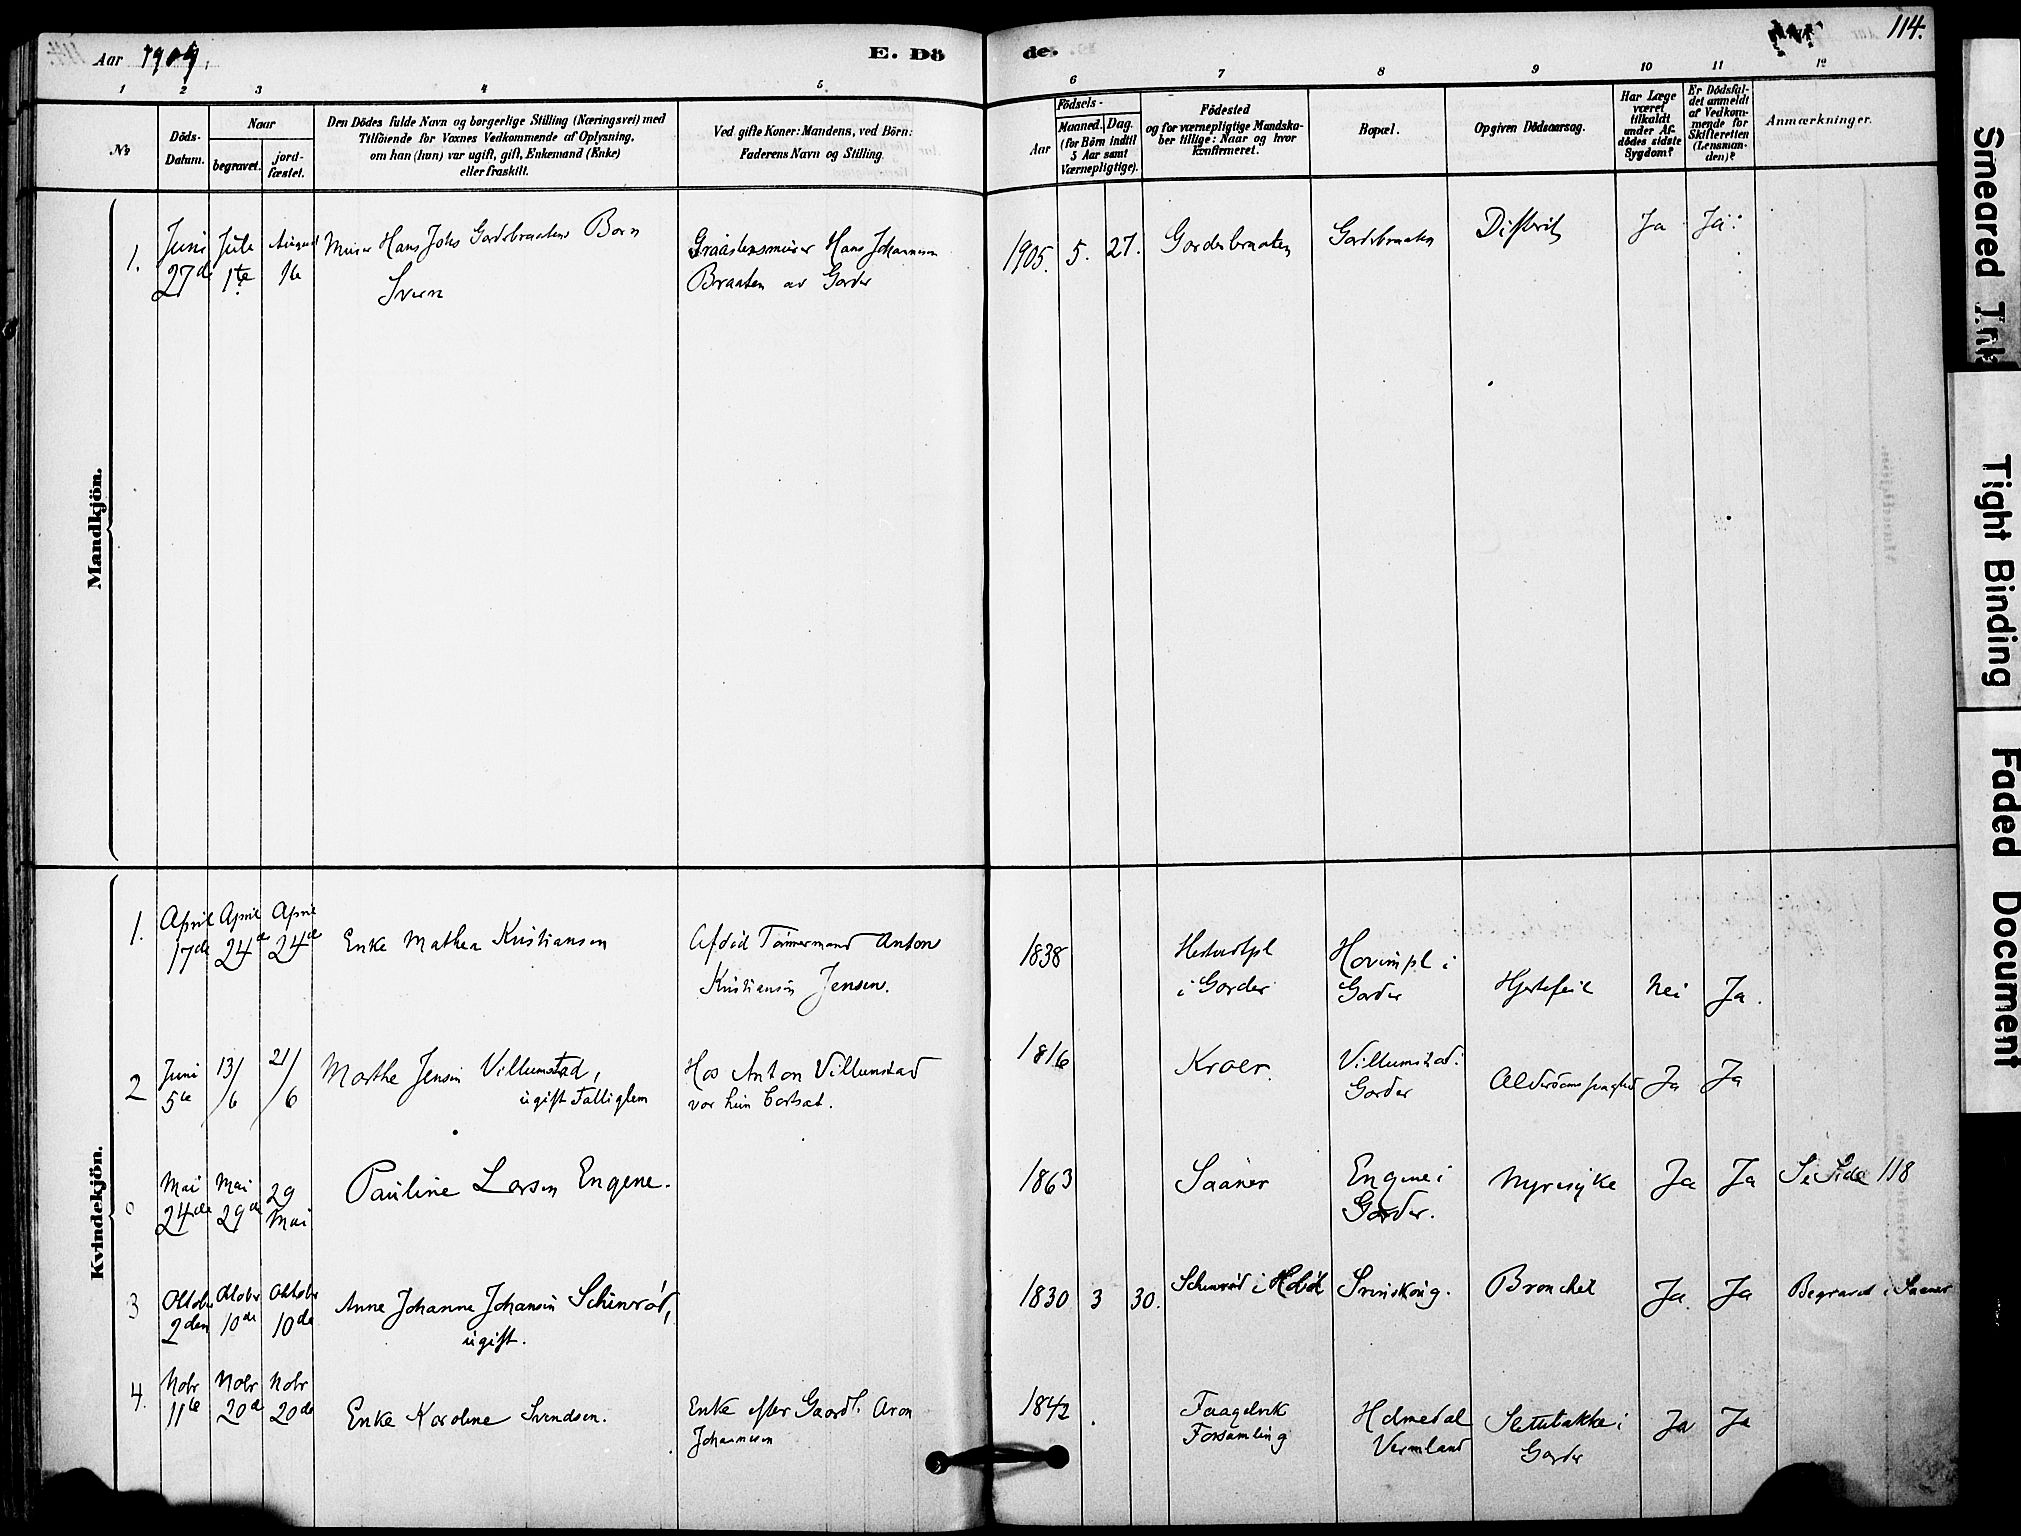 Aar 1909.
E. Dö
de.
114.
1 2 3 4 5. 6 7 8 9 10 11 12
No
Döds-
Datum.
Naar
begravet.
jord-
fæstet.
Den Dödes fulde Navn og borgerlige Stilling (Næringsvei) med
Tilföiende for Voxnes Vedkommende af Oplysning,
om han (hun) var ugift, gift, Enkemand (Enke)
eller fraskilt.
Ved gifte Koner: Mandens, ved Börn:
Faderens Navn og Stilling.
Födsels-
Aar
Maaned.
Dag.
(for Börn indtil
5 Aar samt
Værnepligtige).
Födested
og for værnepligtige Mandska-
ber tillige: Naar og hvor
konfirmeret.
Bopæl.
Opgiven Dödsaarsag.
Har Læge
været
tilkaldt
under Af-
dödes sidste
Sygdom?
Er Dödsfal-
det anmeldt
af Vedkom-
mende for
Skifteretten
(Lensman-
den)?
Anmærkninger.
Mandkjön.
1.
Juni
27d
Jule
1te
August
16
Murer Hans Johs Gardsbraatens Barn
Svern
Graastensmurer Hans Johannesen
Braaten av Garder
1905. 5. 27.
Garderbraaten
Gardsbraaten
Difterit
Ja
Ja
Kvindekjön.
1.
April
17de
April
24de
April
24de
Enke Mathea Kristiansen
Afdöd Tömmermand Anton
Kristiansen Jensen.
1838
i Garder
Hovinpl i
Garder
Hjertefeil
Nei
Ja.
2
Juni
5te
13/6
21/6
Marthe Jensen Villumstad,
ugift Fattiglem
Hos Anton Villumstad
var hun bortsat.
1816
Kroer.
Villumstad i
Garder
Ja
Ja
0
Mai
24de
Mai
29de
29
Mai
Pauline Larsen Engene.
1863
Saaner
Engene i
Garder.
Nyresyke
Ja
Ja
Se Side 118
3
Oktober
2den
Oktober
10de
Oktober
10de
Anne Johanne Johansen Schinsröd,
ugift.
1830 3 30.
Schinsröd i Hobøl
Svinskoug.
Bronchit
Ja.
Ja
Begravet i Saaner
4.
Nobr
11te
Nobr
20de
Nobr
20de
Enke Karoline Svendsen.
Enke efter Gaardb. Aron
Johannesen
1842
Faagelvik
Forsamling
Holmedal
Vermland
Slettebakke i
Garder
Ja
Ja
Smeared Ink
Tight Binding
Faded Document